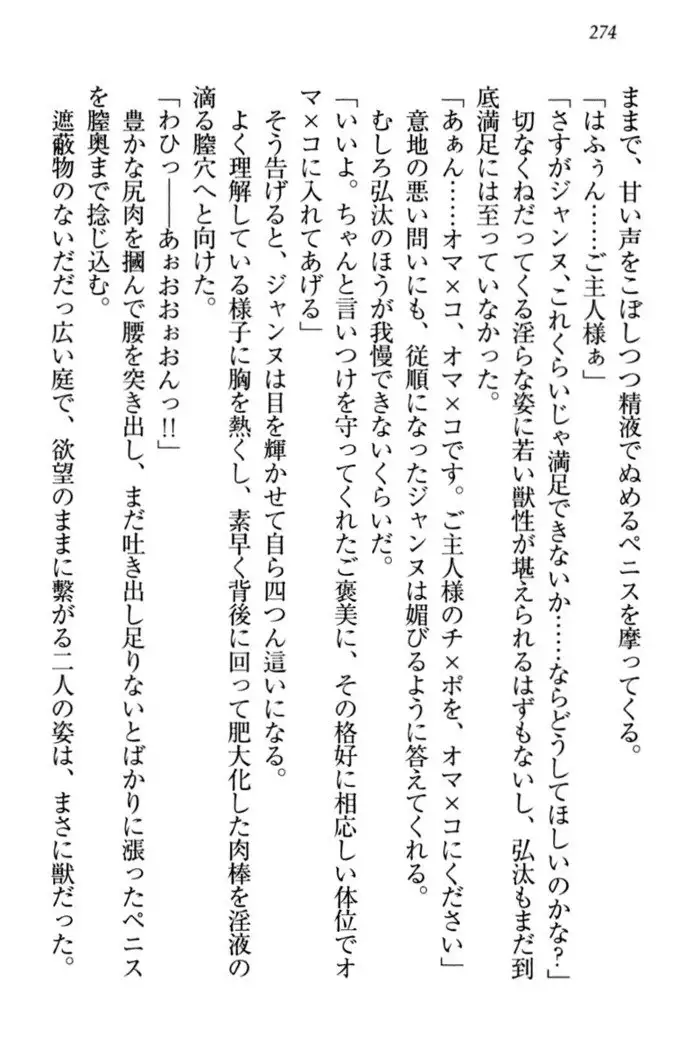 274
ままで、甘い声をこぼしつつ精液でぬめるペニスを摩ってくる。
「はふぅん……ご主人様ぁ」
「さすがジャンヌ、これくらいじゃ満足できないか……ならどうしてほしいのかな?」
切なくねだってくる淫らな姿に若い獣性が堪えられるはずもないし、弘汰もまだ到
底満足には至っていなかった。
「あぁん……オマ×コ、オマ×コです。ご主人様のチ×ポを、オマ×コにください」
意地の悪い問いにも、従順になったジャンヌは媚びるように答えてくれる。
むしろ弘汰のほうが我慢できないくらいだ。
「いいよ。ちゃんと言いつけを守ってくれたご褒美に、その格好に相応しい体位でオ
マ×コに入れてあげる」
そう告げると、ジャンヌは目を輝かせて自ら四つん這いになる。
よく理解している様子に胸を熱くし、素早く背後に回って肥大化した肉棒を淫液の
滴る膣穴へと向けた。
「わひっ――あぉおおぉおんっ!!」
豊かな尻肉を摑んで腰を突き出し、まだ吐き出し足りないとばかりに漲ったペニス
を膣奥まで捻じ込む。
遮蔽物のないだだっ広い庭で、欲望のままに繫がる二人の姿は、まさに獣だった。